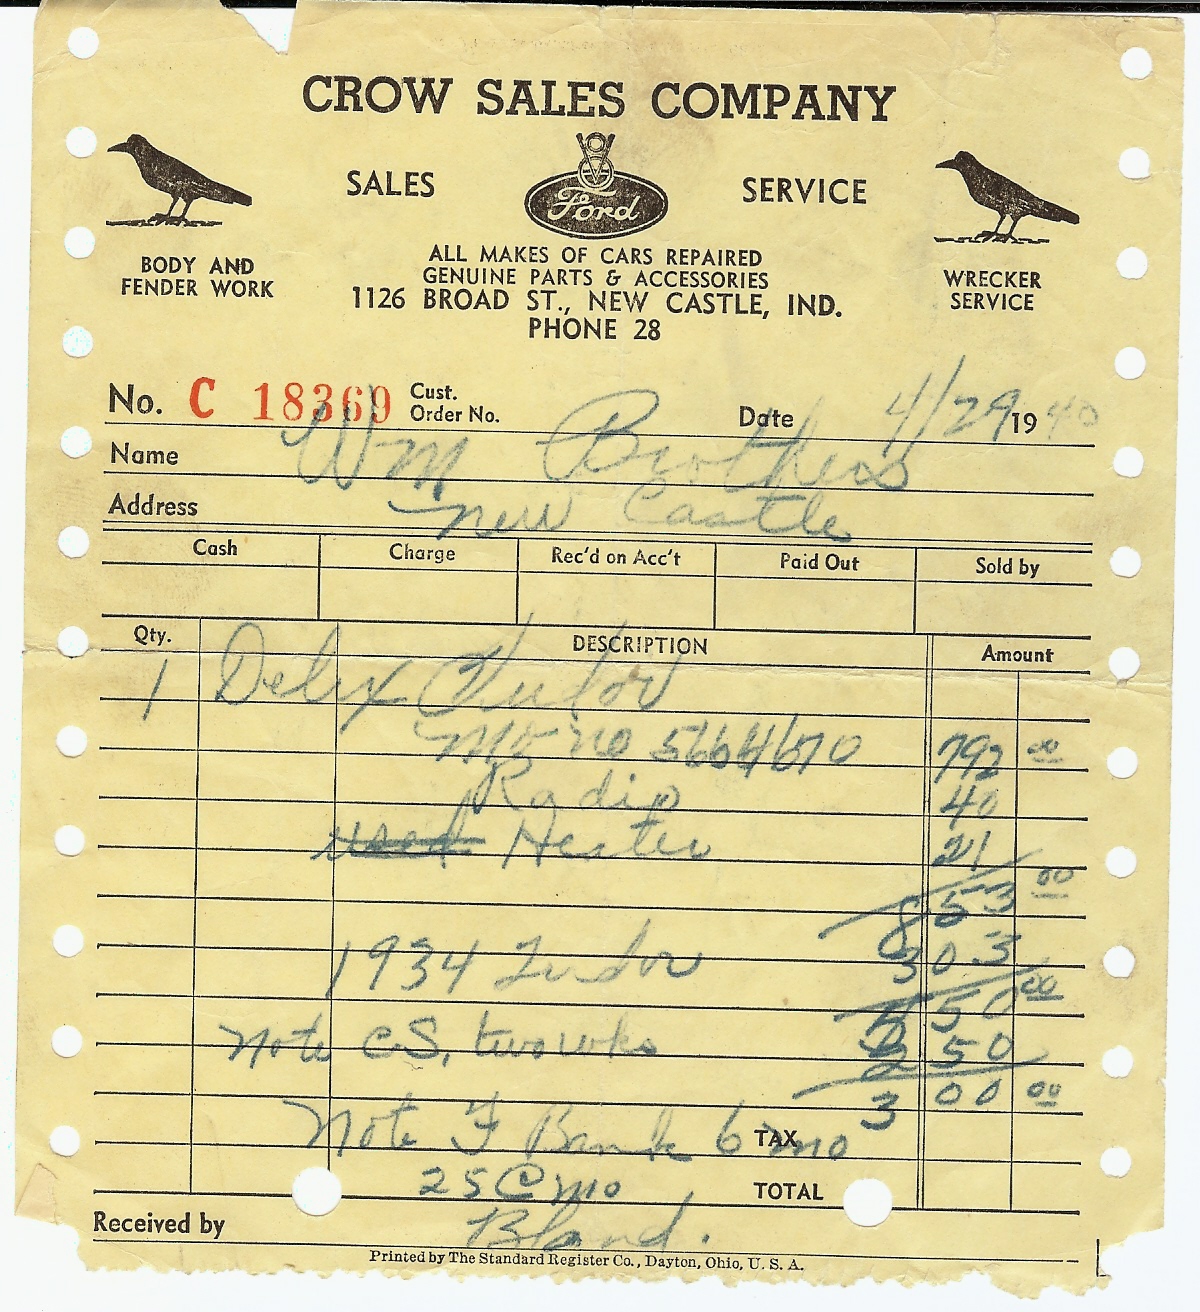 CROW SALES COMPANY
SALES Ford SERVICE
BODY AND FENDER WORK
ALL MAKES OF CARS REPAIRED
GENUINE PARTS & ACCESSORIES
1126 BROAD ST., NEW CASTLE, IND.
PHONE 28
WRECKER SERVICE
No. C 18369 Cust. Order No. Date 4/29 1940
Name Wm Brothers
Address New Castle
Cash Charge Rec'd on Acc't Paid Out Sold by
Qty. DESCRIPTION Amount
1 Delux Tudor
Mo no 5664670 792 00
Radio 40
used Heater 21
853 00
1934 Tudor 303
550 00
Note CS, two wks 250
300 00
Note F Bank 6 mo TAX
25 @ mo TOTAL
Received by Bland.
Printed by The Standard Register Co., Dayton, Ohio, U. S. A.